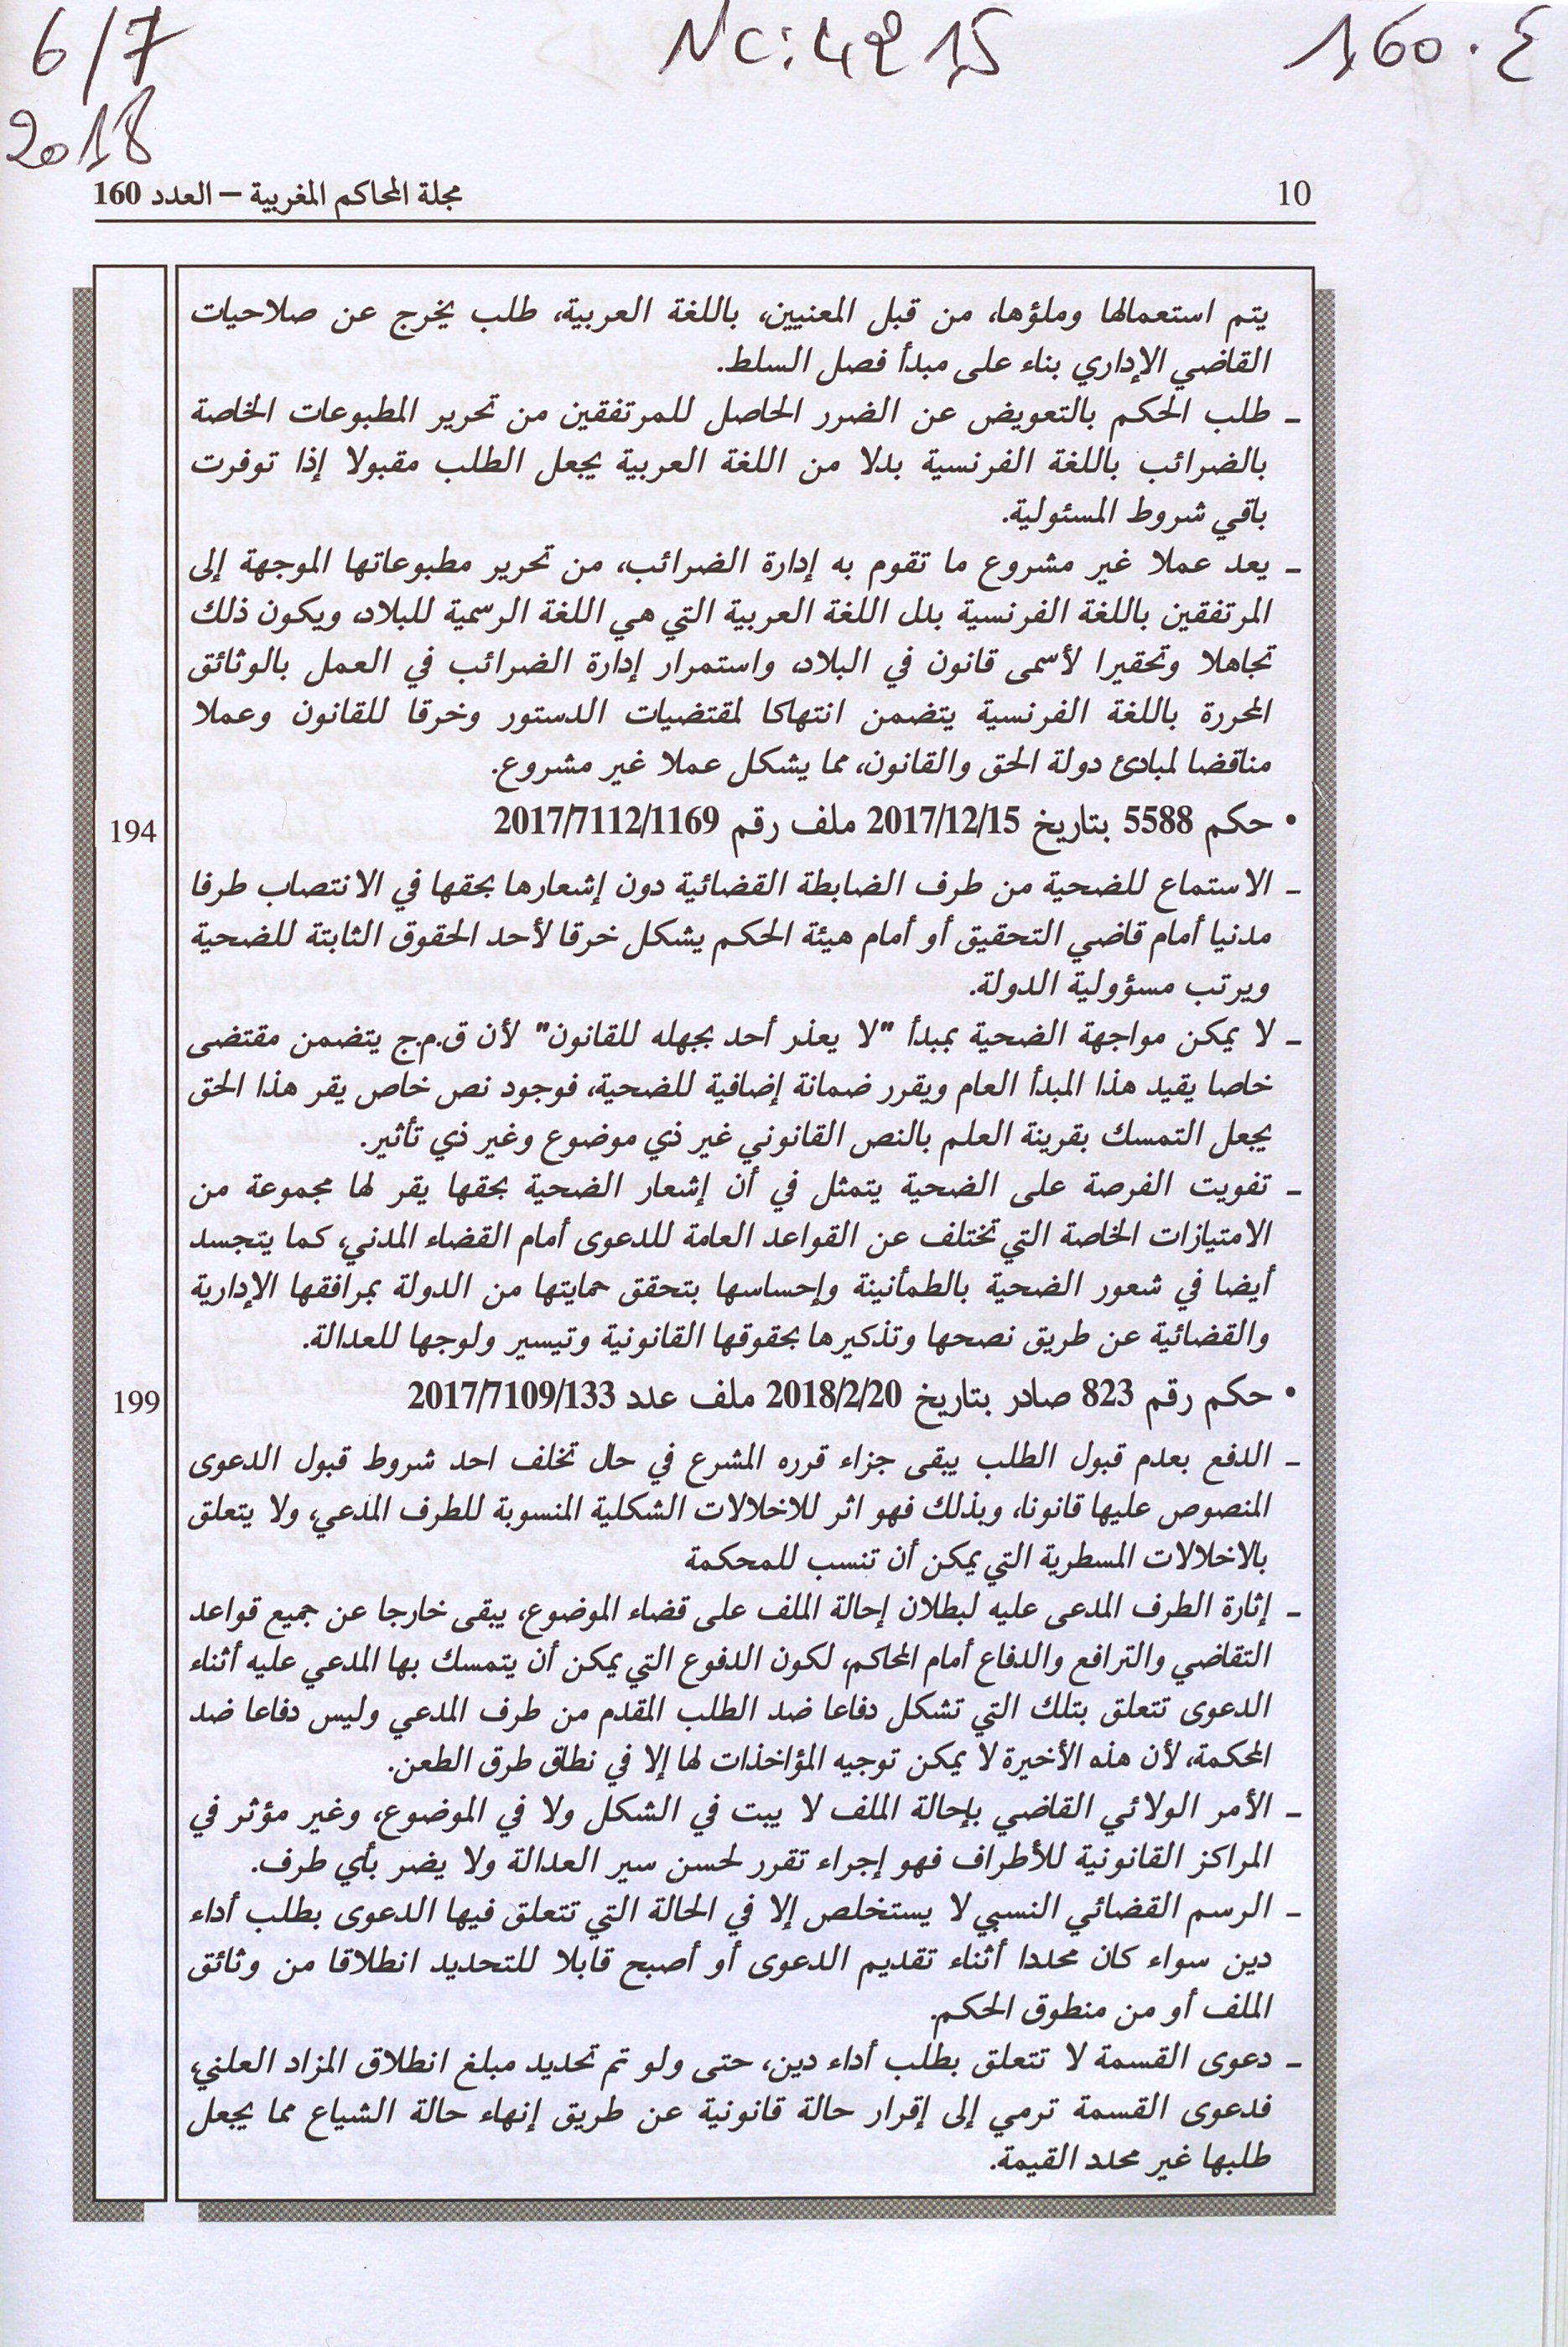 6/7
2018
NC: 4215
160.ع
مجلة المحاكم المغربية – العدد 160
10
يتم استعمالها وملؤها، من قبل المعنيين، باللغة العربية، طلب يخرج عن صلاحيات
القاضي الإداري بناء على مبدأ فصل السلط.
_ طلب الحكم بالتعويض عن الضرر الحاصل للمرتفقين من تحرير المطبوعات الخاصة
بالضرائب باللغة الفرنسية بدلا من اللغة العربية يجعل الطلب مقبولا إذا توفرت
باقي شروط المسئولية.
_ يعد عملا غير مشروع ما تقوم به إدارة الضرائب، من تحرير مطبوعاتها الموجهة إلى
المرتفقين باللغة الفرنسية بدل اللغة العربية التي هي اللغة الرسمية للبلاد، ويكون ذلك
تجاهلا وتحقيرا لأسمى قانون في البلاد، واستمرار إدارة الضرائب في العمل بالوثائق
المحررة باللغة الفرنسية يتضمن انتهاكا لمقتضيات الدستور وخرقا للقانون وعملا
مناقضا لمبادئ دولة الحق والقانون، مما يشكل عملا غير مشروع.
• حكم 5588 بتاريخ 2017/12/15 ملف رقم 2017/7112/1169
194
_ الاستماع للضحية من طرف الضابطة القضائية دون إشعارها بحقها في الانتصاب طرفا
مدنيا أمام قاضي التحقيق أو أمام هيئة الحكم يشكل خرقا لأحد الحقوق الثابتة للضحية
ويرتب مسؤولية الدولة.
_ لا يمكن مواجهة الضحية بمبدأ "لا يعذر أحد بجهله للقانون" لأن ق.م.ج يتضمن مقتضى
خاصا يقيد هذا المبدأ العام ويقرر ضمانة إضافية للضحية، فوجود نص خاص يقر هذا الحق
يجعل التمسك بقرينة العلم بالنص القانوني غير ذي موضوع وغير ذي تأثير.
_ تفويت الفرصة على الضحية يتمثل في أن إشعار الضحية بحقها يقر لها مجموعة من
الامتيازات الخاصة التي تختلف عن القواعد العامة للدعوى أمام القضاء المدني، كما يتجسد
أيضا في شعور الضحية بالطمأنينة وإحساسها بتحقق حمايتها من الدولة بمرافقها الإدارية
والقضائية عن طريق نصحها وتذكيرها بحقوقها القانونية وتيسير ولوجها للعدالة.
• حكم رقم 823 صادر بتاريخ 2018/2/20 ملف عدد 2017/7109/133
199
_ الدفع بعدم قبول الطلب يبقى جزاء قرره المشرع في حال تخلف احد شروط قبول الدعوى
المنصوص عليها قانونا، وبذلك فهو اثر للاخلالات الشكلية المنسوبة للطرف المدعي، ولا يتعلق
بالاخلالات المسطرية التي يمكن أن تنسب للمحكمة
_ إثارة الطرف المدعى عليه لبطلان إحالة الملف على قضاء الموضوع، يبقى خارجا عن جميع قواعد
التقاضي والترافع والدفاع أمام المحاكم، لكون الدفوع التي يمكن أن يتمسك بها المدعي عليه أثناء
الدعوى تتعلق بتلك التي تشكل دفاعا ضد الطلب المقدم من طرف المدعي وليس دفاعا ضد
المحكمة، لأن هذه الأخيرة لا يمكن توجيه المؤاخذات لها إلا في نطاق طرق الطعن.
_ الأمر الولائي القاضي بإحالة الملف لا يبت في الشكل ولا في الموضوع، وغير مؤثر في
المراكز القانونية للأطراف فهو إجراء تقرر لحسن سير العدالة ولا يضر بأي طرف.
_ الرسم القضائي النسبي لا يستخلص إلا في الحالة التي تتعلق فيها الدعوى بطلب أداء
دين سواء كان محددا أثناء تقديم الدعوى أو أصبح قابلا للتحديد انطلاقا من وثائق
الملف أو من منطوق الحكم.
_ دعوى القسمة لا تتعلق بطلب أداء دين، حتى ولو تم تحديد مبلغ انطلاق المزاد العلني،
فدعوى القسمة ترمي إلى إقرار حالة قانونية عن طريق إنهاء حالة الشياع مما يجعل
طلبها غير محدد القيمة.